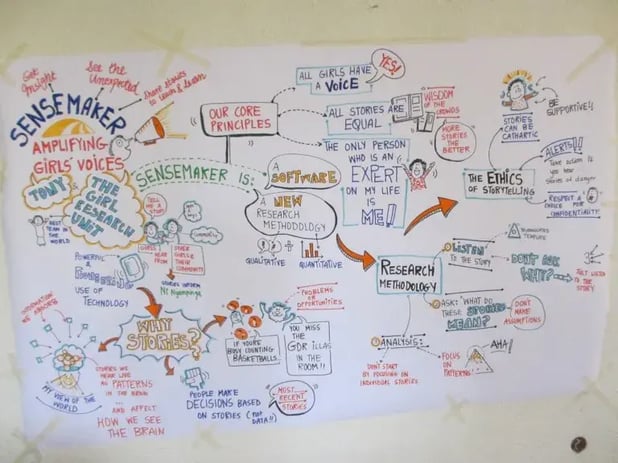 Get
Insight
See the
Unexpected
Share stories
to Learn & Learn
SENSEMAKER
AMPLIFYING
GIRLS' VOICES
TONY &
THE
GIRL
RESEARCH
UNIT
BEST
TEAM IN
THE WORLD
SENSEMAKER IS:
A
SOFTWARE
A
NEW
RESEARCH
METHODOLOGY
QUALITATIVE + QUANTITATIVE
OUR CORE
PRINCIPLES
ALL GIRLS HAVE
A VOICE
YES!
ALL STORIES ARE
EQUAL
WISDOM
OF THE
CROWDS
MORE
STORIES THE
BETTER
THE ONLY PERSON
WHO IS AN
EXPERT
ON MY LIFE
IS
ME!!
THE ETHICS
OF STORYTELLING
STORIES
CAN BE
CATHARTIC
BE
SUPPORTIVE!!
ALERTS!!
Take action if
you hear
stories of danger
RESPECT &
CONFIDENTIALITY
RESEARCH
METHODOLOGY
LISTEN
TO THE STORY
DON'T ASK
WHY?
JUST LISTEN
TO THE
STORY
ASK: WHAT DO
THESE STORIES
MEAN?
DON'T
MAKE
ASSUMPTIONS
ANALYSIS:
DON'T START
BY FOCUSING ON
INDIVIDUAL STORIES
FOCUS ON
PATTERNS!
AHA!
TELL ME
A
STORY
GIRLS
HEAR
FROM
OTHER
GIRLS &
THEIR
COMMUNITY
STORIES INFORM
Ni Nyampinga
POWERFUL
&
USE OF
TECHNOLOGY
WHY
STORIES?
MY VIEW OF THE
WORLD
STORIES WE
HEAR LIVE
AS PATTERNS
IN THE BRAIN
... AND AFFECT
HOW WE SEE
THE BRAIN
PEOPLE MAKE
DECISIONS BASED
ON STORIES (not
DATA!!)
MOST
RECENT
STORIES
IF YOU'RE
BUSY COUNTING
BASKETBALLS
YOU MISS
THE
GORILLAS
IN THE
ROOM!!
PROBLEMS
OR
OPPORTUNITIES